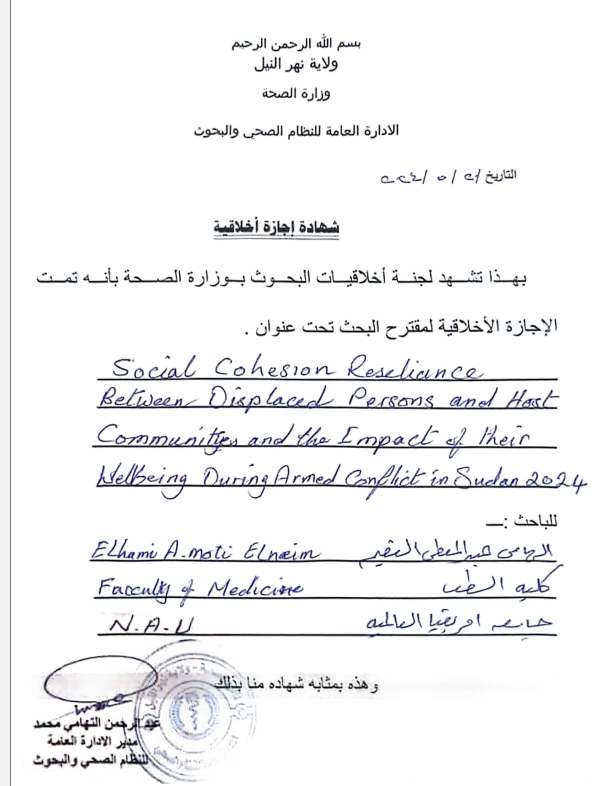 بسم الله الرحمن الرحيم
ولاية نهر النيل
وزارة الصحة
الادارة العامة للنظام الصحي والبحوث
التاريخ
شهادة إجازة أخلاقية
بهذا تشهد لجنة أخلاقيات البحوث بوزارة الصحة بأنه تمت
الإجازة الأخلاقية لمقترح البحث تحت عنوان .
Social Cohesion Reseliance
Between Displaced Persons and Host
Communities and the Impact of their
Wellbeing During Armed Conflict in Sudan 2024
للباحث :ـ
Elhami A.moti Elnaim
Facculty of Medicine كليه الطب
N.A.U جامعه افريقيا العالميه
وهذه بمثابه شهاده منا بذلك
عبد الرحمن التهامي محمد
مدير الادارة العامة
للنظام الصحي والبحوث